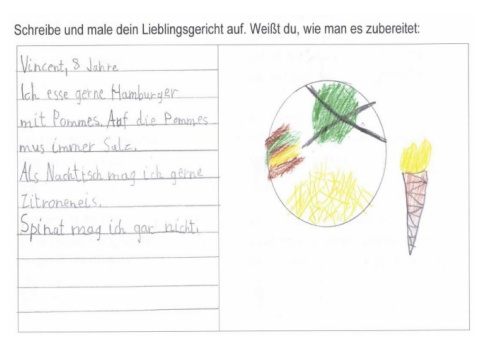 Schreibe und male dein Lieblingsgericht auf. Weißt du, wie man es zubereitet:
Vincent, 8 Jahre
Ich esse gerne Hamburger
mit Pommes. Auf die Pommes
mus immer Salz.
Als Nachtisch mag ich gerne
Zitroneneis.
Spinat mag ich gar nicht.